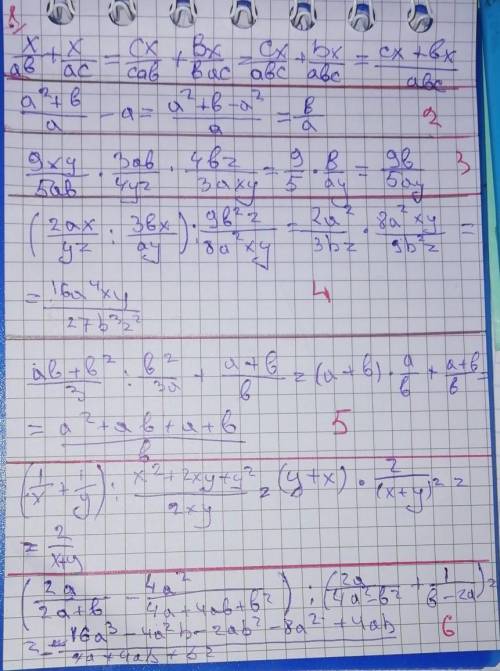 8)
x/ab + x/ac = cx/cab + вx/вac = cx/abc + bx/abc = (cx + вx)/abc
(a² + в)/a - a = (a² + в - a²)/a = в/a 2
9xy/5ab · 3ab/4yz · 4bz/3axy = 9/5 · в/ay = 9в/5ay 3
(2ax/yz : 3вx/ay) · 9в²z/8a²xy = 2a²/3bz · 8a²xy/9b²z =
= 16a⁴xy/27b³z² 4
(ab + в²)/3 : в²/3a + (a + в)/в = (a + в) · a/в + (a + в)/в =
= (a² + aв + a + в)/в 5
(1/x + 1/y) : (x² + 2xy + y²)/2xy = (y + x) · 2/(x+y)² =
= 2/(x+y)
(2a/(2a + в) - 4a²/(4a + 4aв + в²)) : (2a/(4a² - в²) + 1/(в - 2a)) =
= (-16a³ - 4a²b - 2aв² - 8a² + 4aв)/(4a + 4aв + в²) 6